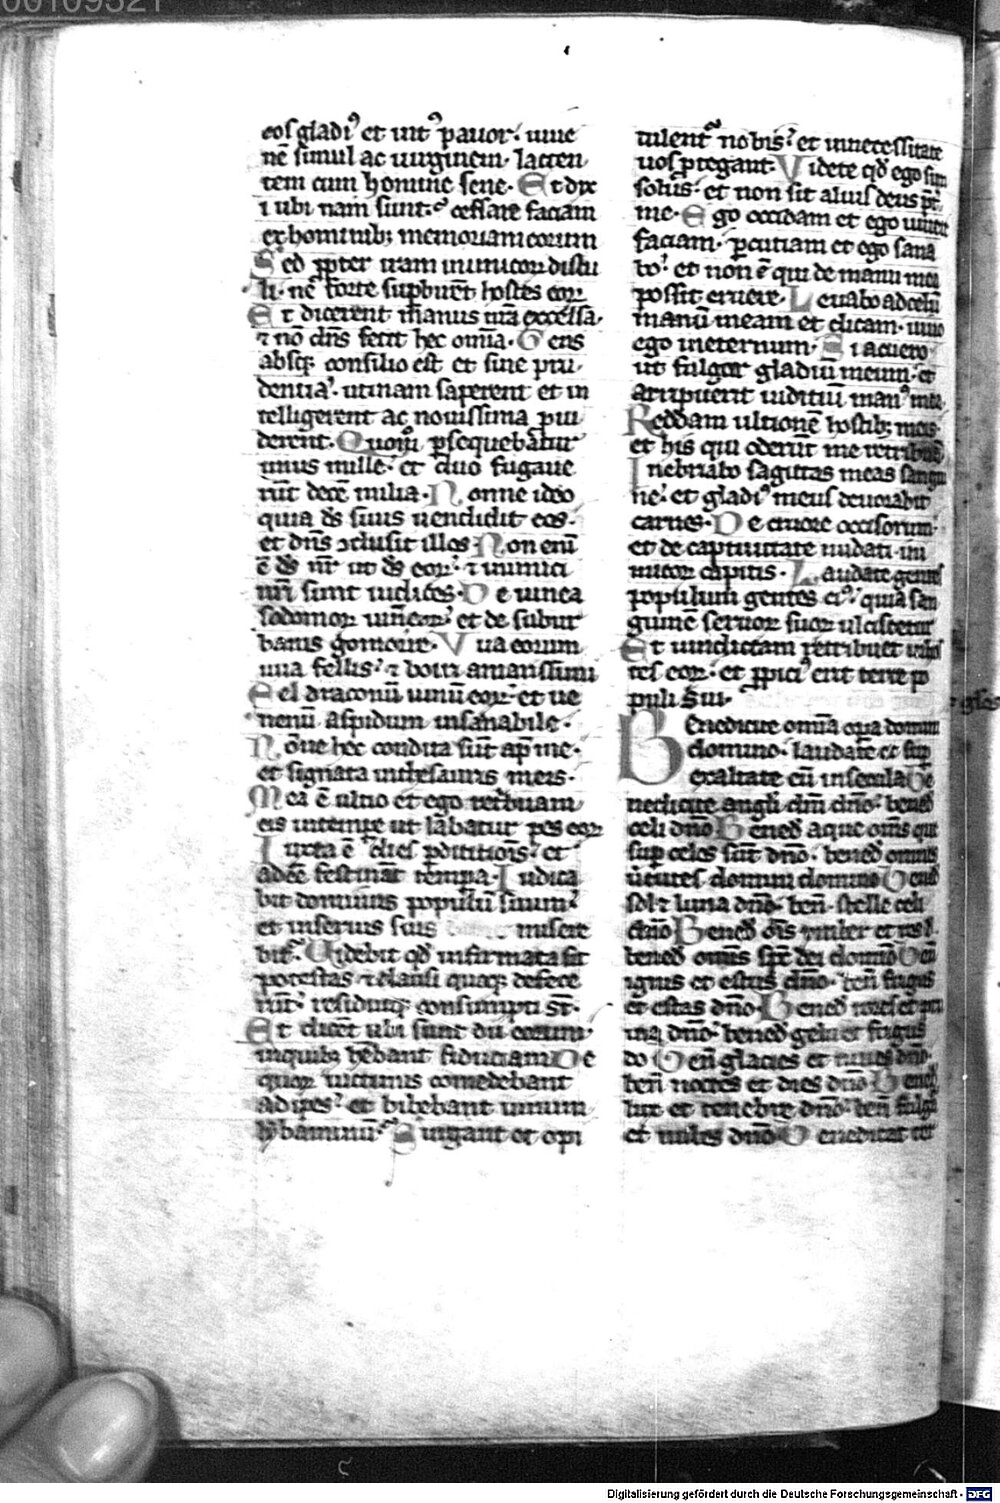 eos gladiꝰ et int᷑ꝰ pauor· iuue
nē simul ac uirginem· lacten
tem cum homine sene· Et dix
i ubi nam sunt· cessare faciam
ex hominib; memoriam eorum
Sed ꝓpter iram inimicoꝝ distu
li· ne forte suꝑbirēt hostes eoꝝ
Et dicerent manus nr̄a excelsa·
⁊ nō dn̄s fecit hec om̄ia· Gens
absq; consilio est et sine pru
dentia· utinam saperent et in
telligerent ac nouissima ꝓui
derent· Quom̄ ꝑsequebatur
unus mille· et duo fugaue
rūt decē milia· Nonne ideo
quia ds̄ suus uendidit eos·
et dn̄s ↄclusit illos Non eni
ē ds̄ nr̄ ut ds̄ eoꝝ· ⁊ inimici
nr̄i sunt iudices· De uinea
sodomoꝝ uinea eoꝝ· et de subur
banis gomorre· Vua eorum
uua fellis· ⁊ botri amarissimi
Fel draconū uinū eoꝝ· et ue
nenū aspidum insanabile·
Nōne hec condita sūt ap̄ me·
et signata in thesauris meis·
Mea ē ultio et ego retribuam
eis in tempe ut labatur pes eoꝝ
Iuxta ē dies ꝑditiois· et
adeē festināt tempa· Iudica
bit dominus populū suum·
et in seruis suis misere
bit᷑· Videbit qd̄ infirmata sit
potestas ⁊ clausi quoq; defece
rūt· residuiq; consumpti st̄·
Et dicet ubi sunt dii eorum·
in quib; hēbant fiduciam De
quoꝝ uictimis comedebant
adipes· et bibebant uinum
lybaminū· Surgant et opi
tulent᷑ nobis· et in necessitate
uos ꝓtegant· Videte qd̄ ego sim
solus· et non sit alius deus p̄t̄
me· Ego occidam et ego uiuere
faciam· ꝑcutiam et ego sana
bo· et non ē qui de manu mea
possit eruere· Leuabo ad celū
manū meam et dicam· uiuo
ego in eternum· Si acuero
ut fulgor gladiū meum· et
arripuerit iuditiū manꝰ mea
Reddam ultionē hostib; meis·
et his qui oderūt me retribuā
Inebriabo sagittas meas sangui
ne· et gladiꝰ meus deuorabit
carnes· De cruore occisorum·
et de captiuitate nudati ini
micoꝝ capitis· Laudate gentes
populum gentes eiꝰ· quia san
guinē seruoꝝ suoꝝ ulciscetur
Et uindictam retribuet in hos
tes eoꝝ· et ꝓpiciꝰ erit terre po
puli sui·
Benedicite omīa opa domini
domino· laudate et sup
exaltate eū in secula Be
nedicite angli dn̄i dn̄o· bened
celi dn̄o Bened̄ aque om̄s que
sup celos sūt dn̄o· bened̄ omnes
uirtutes domini domino Bened̄
sol ⁊ luna dn̄o· ben̄ stelle celi
dn̄o Bened̄ ois ymber et ros d·
bened̄ om̄s sp̄c dei domio Ben̄
ignis et estus dn̄o· ben̄ frigus
et estas dn̄o Bened̄ rores et pru
ina dn̄o· bened̄ gelu et frigus
do Ben̄ glacies et niues dn̄o·
ben̄ noctes et dies dn̄o Bened̄
lux et tenebre dn̄o· ben̄ fulg̃a
et nubes dn̄o Benedicat ter
Digitalisierung gefördert durch die Deutsche Forschungsgemeinschaft - DFG